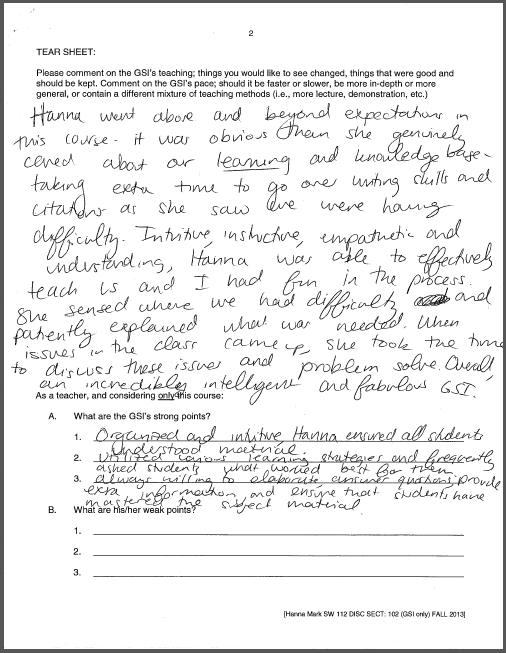 2
TEAR SHEET:
Please comment on the GSI's teaching; things you would like to see changed, things that were good and
should be kept. Comment on the GSI's pace; should it be faster or slower, be more in-depth or more
general, or contain a different mixture of teaching methods (i.e., more lecture, demonstration, etc.)
Hanna went above and beyond expectations in
this course - it was obvious then she genuinely
cared about our learning and knowledge base -
taking extra time to go over writing skills and
citations as she saw we were having
difficulty. Intuitive, instructive, empathetic and
understanding, Hanna was able to effectively
teach us and I had fun in the process.
She sensed where we had difficulty and
patiently explained what was needed. When
issues in the class came up, she took the time
to discuss these issues and problem solve. Overall
an incredibly intelligent and fabulous GSI.
As a teacher, and considering only this course:
A. What are the GSI's strong points?
1. Organized and intuitive Hanna ensured all students
understood material.
2. Utilized various learning strategies and frequently
asked students what worked best for them
3. Always willing to elaborate, answer questions, provide
extra information and ensure that students have
mastered the subject material
B. What are his/her weak points?
1.
2.
3.
[Hanna Mark SW 112 DISC SECT: 102 (GSI only) FALL 2013]